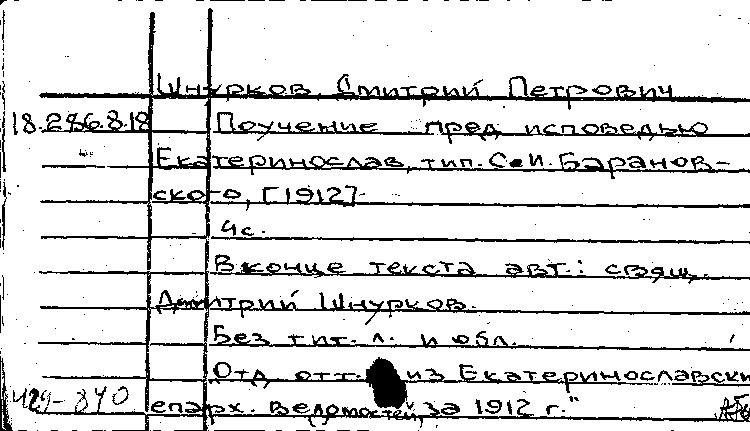 Шнурков, Дмитрий Петрович
18.286.8.18 Поучение пред исповедью
Екатеринослав, тип. С. и. Баранов-
ского, [1912]
4 с.
В конце текста авт.: свящ.
Дмитрий Шнурков.
Без тит. л. и обл.
Отд. отт. из Екатеринославски
429-840 епарх. ведомостей, за 1912 г."